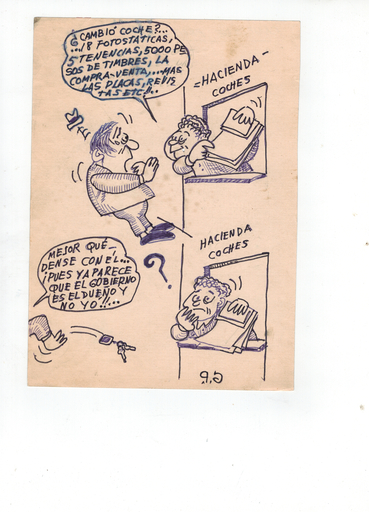 ¿CAMBIÓ COCHE?...
...18 FOTOSTÁTICAS,
5 TENENCIAS, 5000 PE
SOS DE TIMBRES, LA
COMPRA-VENTA,...MAS
LAS PLACAS, REVIS
TAS ETC!!..
=HACIENDA-
COCHES
HACIENDA
COCHES
MEJOR QUÉ-
DENSE CON ÉL...
¡PUES YA PARECE
QUE EL GOBIERNO
ES EL DUEÑO Y
NO YO!!...
?
G.P.